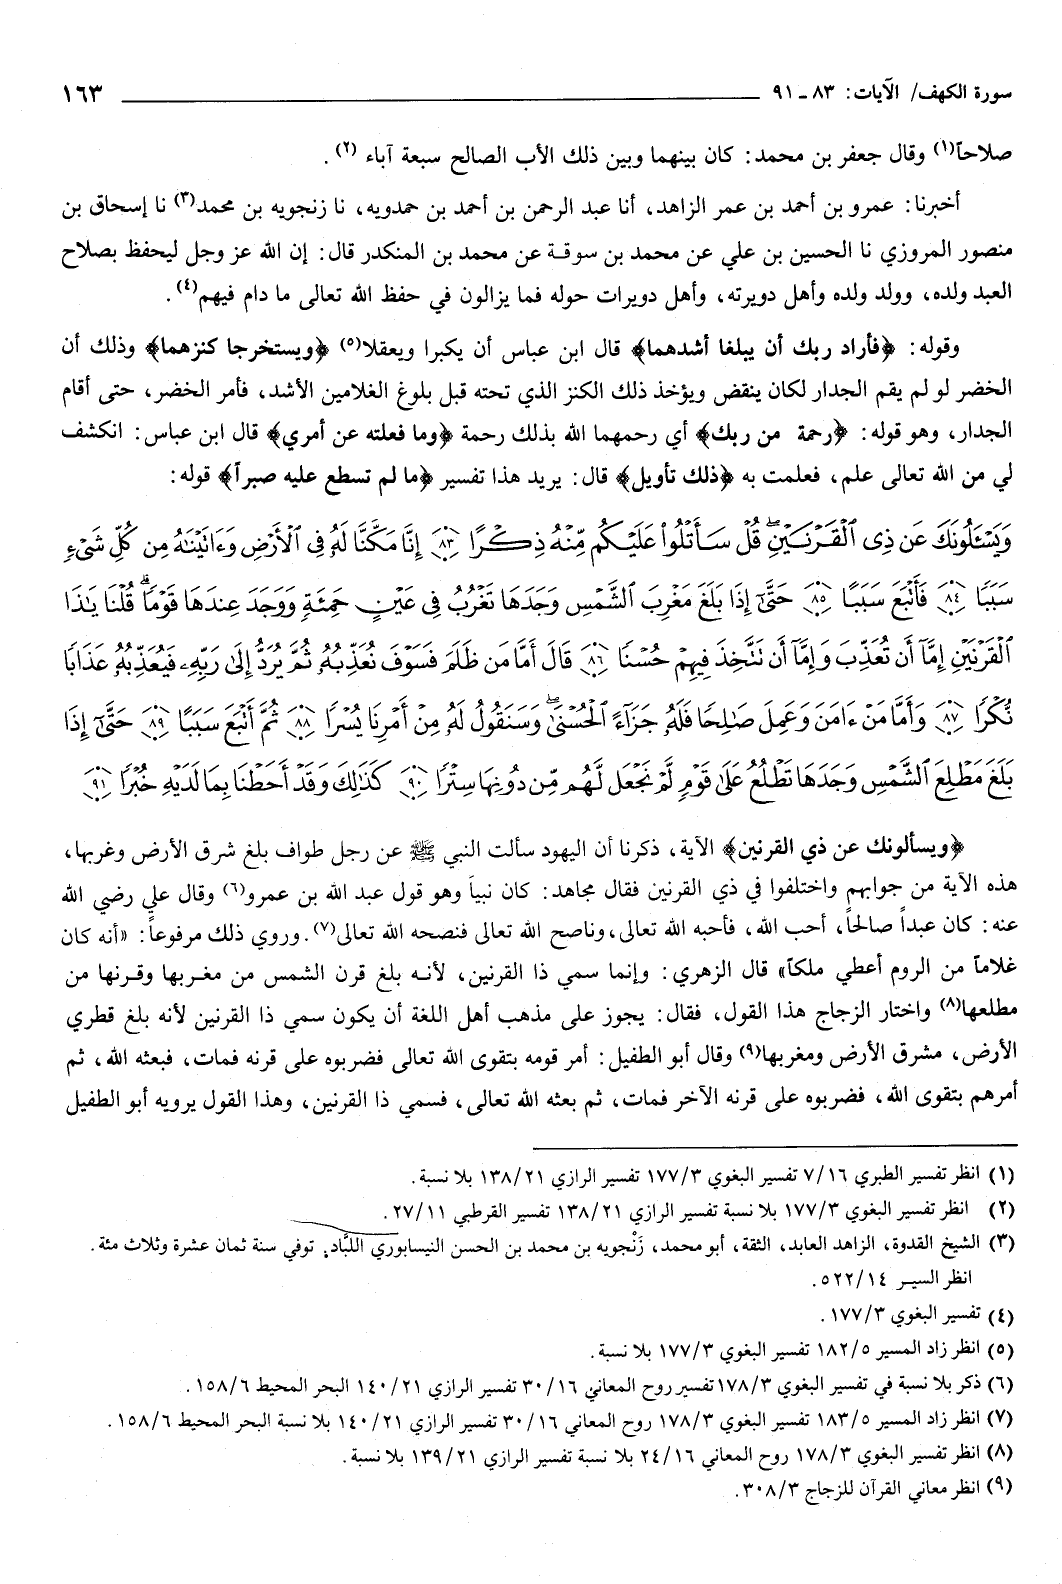 سورة الكهف/ الآيات: ٨٣ ـ ٩١ ١٦٣
صلاحاً(١) وقال جعفر بن محمد: كان بينهما وبين ذلك الأب الصالح سبعة آباء (٢).
أخبرنا: عمرو بن أحمد بن عمر الزاهد، أنا عبد الرحمن بن أحمد بن حمدويه، نا زنجويه بن محمد(٣) نا إسحاق بن
منصور المروزي نا الحسين بن علي عن محمد بن سوقة عن محمد بن المنكدر قال: إن الله عز وجل ليحفظ بصلاح
العبد ولده، وولد ولده وأهل دويرته، وأهل دويرات حوله فما يزالون في حفظ الله تعالى ما دام فيهم(٤).
وقوله: ﴿فأراد ربك أن يبلغا أشدهما﴾ قال ابن عباس أن يكبرا ويعقلا(٥) ﴿ويستخرجا كنزهما﴾ وذلك أن
الخضر لو لم يقم الجدار لكان ينقض ويؤخذ ذلك الكنز الذي تحته قبل بلوغ الغلامين الأشد، فأمر الخضر، حتى أقام
الجدار، وهو قوله: ﴿رحمة من ربك﴾ أي رحمهما الله بذلك رحمة ﴿وما فعلته عن أمري﴾ قال ابن عباس: انكشف
لي من الله تعالى علم، فعلمت به ﴿ذلك تأويل﴾ قال: يريد هذا تفسير ﴿ما لم تسطع عليه صبراً﴾ قوله:
وَيَسْـَٔلُونَكَ عَن ذِى ٱلْقَرْنَيْنِ ۖ قُلْ سَأَتْلُوا۟ عَلَيْكُم مِّنْهُ ذِكْرًا ﴿٨٣﴾ إِنَّا مَكَّنَّا لَهُۥ فِى ٱلْأَرْضِ وَءَاتَيْنَـٰهُ مِن كُلِّ شَىْءٍ
سَبَبًا ﴿٨٤﴾ فَأَتْبَعَ سَبَبًا ﴿٨٥﴾ حَتَّىٰٓ إِذَا بَلَغَ مَغْرِبَ ٱلشَّمْسِ وَجَدَهَا تَغْرُبُ فِى عَيْنٍ حَمِئَةٍ وَوَجَدَ عِندَهَا قَوْمًا ۗ قُلْنَا يَـٰذَا
ٱلْقَرْنَيْنِ إِمَّآ أَن تُعَذِّبَ وَإِمَّآ أَن تَتَّخِذَ فِيهِمْ حُسْنًا ﴿٨٦﴾ قَالَ أَمَّا مَن ظَلَمَ فَسَوْفَ نُعَذِّبُهُۥ ثُمَّ يُرَدُّ إِلَىٰ رَبِّهِۦ فَيُعَذِّبُهُۥ عَذَابًا
نُّكْرًا ﴿٨٧﴾ وَأَمَّا مَنْ ءَامَنَ وَعَمِلَ صَـٰلِحًا فَلَهُۥ جَزَآءً ٱلْحُسْنَىٰ ۖ وَسَنَقُولُ لَهُۥ مِنْ أَمْرِنَا يُسْرًا ﴿٨٨﴾ ثُمَّ أَتْبَعَ سَبَبًا ﴿٨٩﴾ حَتَّىٰٓ إِذَا
بَلَغَ مَطْلِعَ ٱلشَّمْسِ وَجَدَهَا تَطْلُعُ عَلَىٰ قَوْمٍ لَّمْ نَجْعَل لَّهُم مِّن دُونِهَا سِتْرًا ﴿٩٠﴾ كَذَٰلِكَ وَقَدْ أَحَطْنَا بِمَا لَدَيْهِ خُبْرًا ﴿٩١﴾
﴿ويسألونك عن ذي القرنين﴾ الآية، ذكرنا أن اليهود سألت النبي ﷺ عن رجل طواف بلغ شرق الأرض وغربها،
هذه الآية من جوابهم واختلفوا في ذي القرنين فقال مجاهد: كان نبياً وهو قول عبد الله بن عمرو(٦) وقال علي رضي الله
عنه: كان عبداً صالحاً، أحب الله، فأحبه الله تعالى، وناصح الله تعالى فنصحه الله تعالى(٧). وروي ذلك مرفوعاً: «أنه كان
غلاماً من الروم أعطي ملكاً» قال الزهري: وإنما سمي ذا القرنين، لأنه بلغ قرن الشمس من مغربها وقرنها من
مطلعها(٨) واختار الزجاج هذا القول، فقال: يجوز على مذهب أهل اللغة أن يكون سمي ذا القرنين لأنه بلغ قطري
الأرض، مشرق الأرض ومغربها(٩) وقال أبو الطفيل: أمر قومه بتقوى الله تعالى فضربوه على قرنه فمات، فبعثه الله، ثم
أمرهم بتقوى الله، فضربوه على قرنه الآخر فمات، ثم بعثه الله تعالى، فسمي ذا القرنين، وهذا القول يرويه أبو الطفيل
(١) انظر تفسير الطبري ٧/١٦ تفسير البغوي ١٧٧/٣ تفسير الرازي ١٣٨/٢١ بلا نسبة.
(٢) انظر تفسير البغوي ١٧٧/٣ بلا نسبة تفسير الرازي ١٣٨/٢١ تفسير القرطبي ٢٧/١١.
(٣) الشيخ القدوة، الزاهد العابد، الثقة، أبو محمد، زَنْجويه بن محمد بن الحسن النيسابوري اللبَّاد، توفي سنة ثمان عشرة وثلاث مئة.
انظر السير ٥٢٢/١٤.
(٤) تفسير البغوي ١٧٧/٣.
(٥) انظر زاد المسير ١٨٢/٥ تفسير البغوي ١٧٧/٣ بلا نسبة.
(٦) ذكر بلا نسبة في تفسير البغوي ١٧٨/٣ تفسير روح المعاني ٣٠/١٦ تفسير الرازي ١٤٠/٢١ البحر المحيط ١٥٨/٦.
(٧) انظر زاد المسير ١٨٣/٥ تفسير البغوي ١٧٨/٣ روح المعاني ٣٠/١٦ تفسير الرازي ١٤٠/٢١ بلا نسبة البحر المحيط ١٥٨/٦.
(٨) انظر تفسير البغوي ١٧٨/٣ روح المعاني ٢٤/١٦ بلا نسبة تفسير الرازي ١٣٩/٢١ بلا نسبة.
(٩) انظر معاني القرآن للزجاج ٣٠٨/٣.